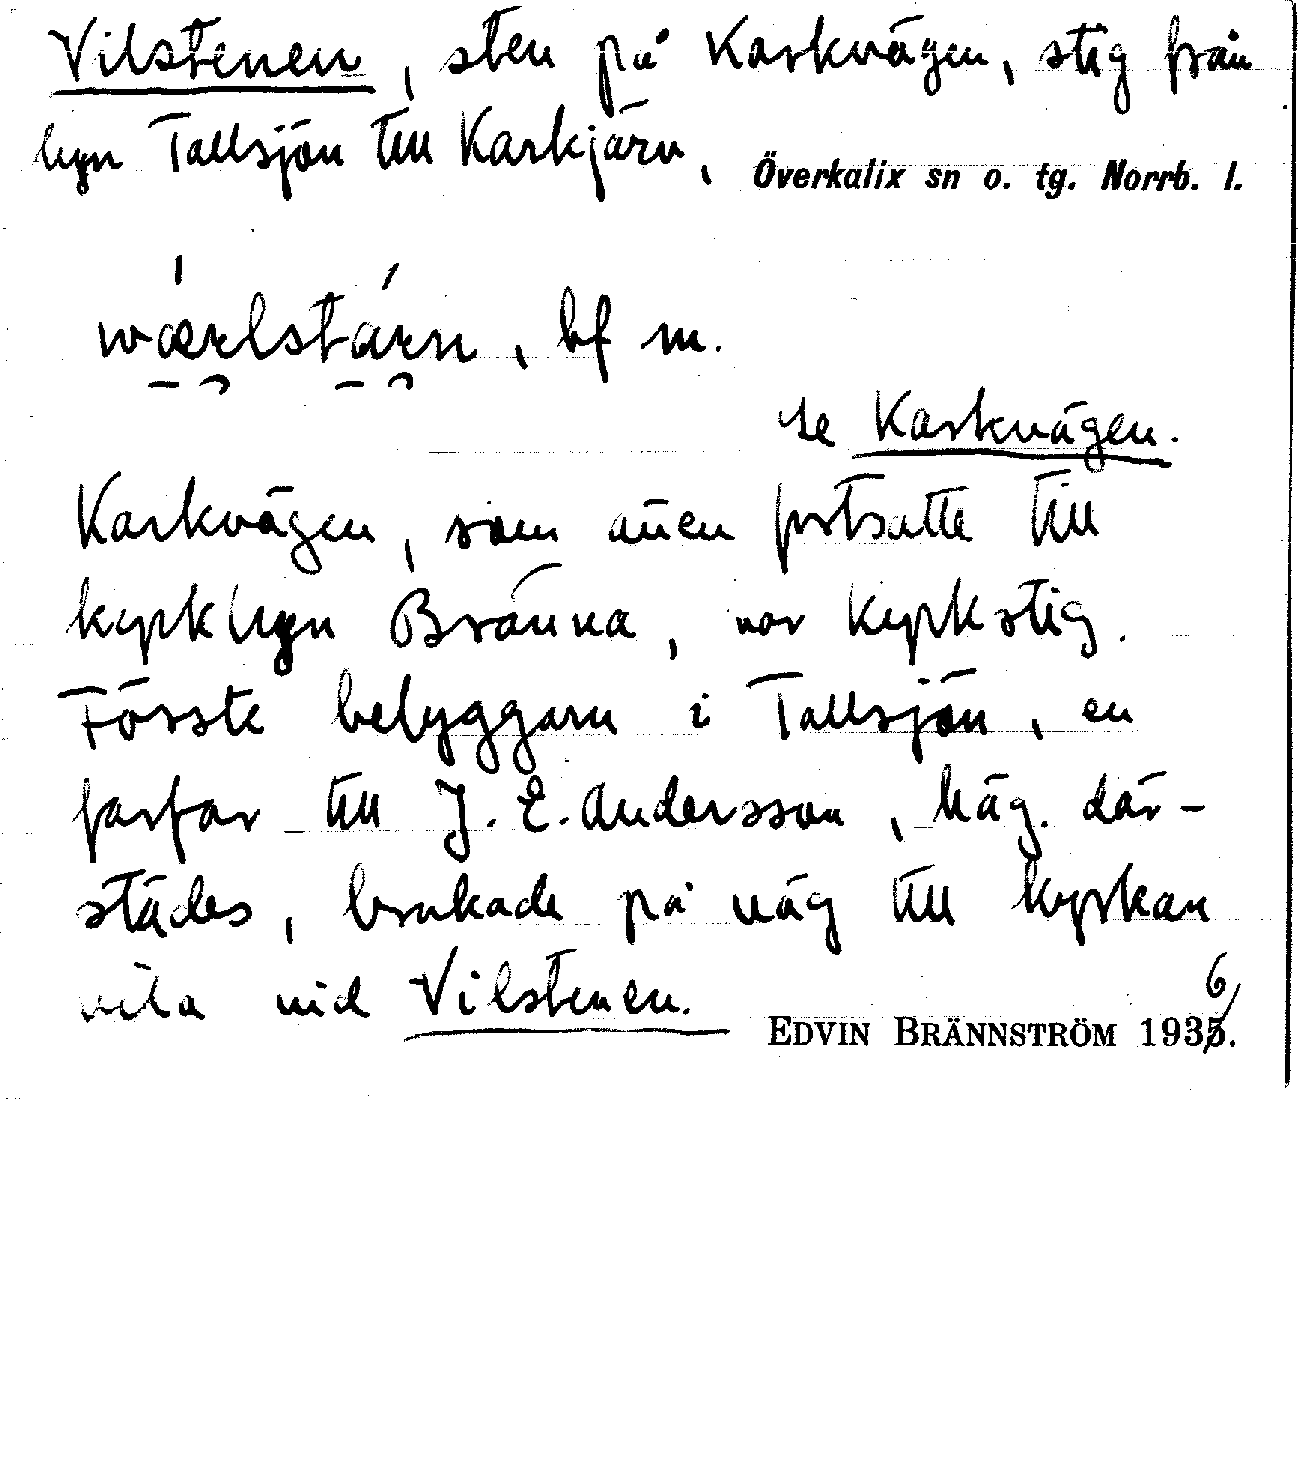 Vilstenen, sten på Karkvägen, stig från
byn Tallsjön till Karkjärv, Överkalix sn o. tg. Norrb. l.
wærlstárn, bf m.
se Karkvägen.
Karkvägen, som även fortsatte till
kyrkbyn Bränna, var kyrkstig.
Förste bebyggarn i Tallsjön, en
farfar till J. E. Andersson, häg. där-
städes, brukade på väg till kyrkan
vila vid Vilstenen. EDVIN BRÄNNSTRÖM 1936.